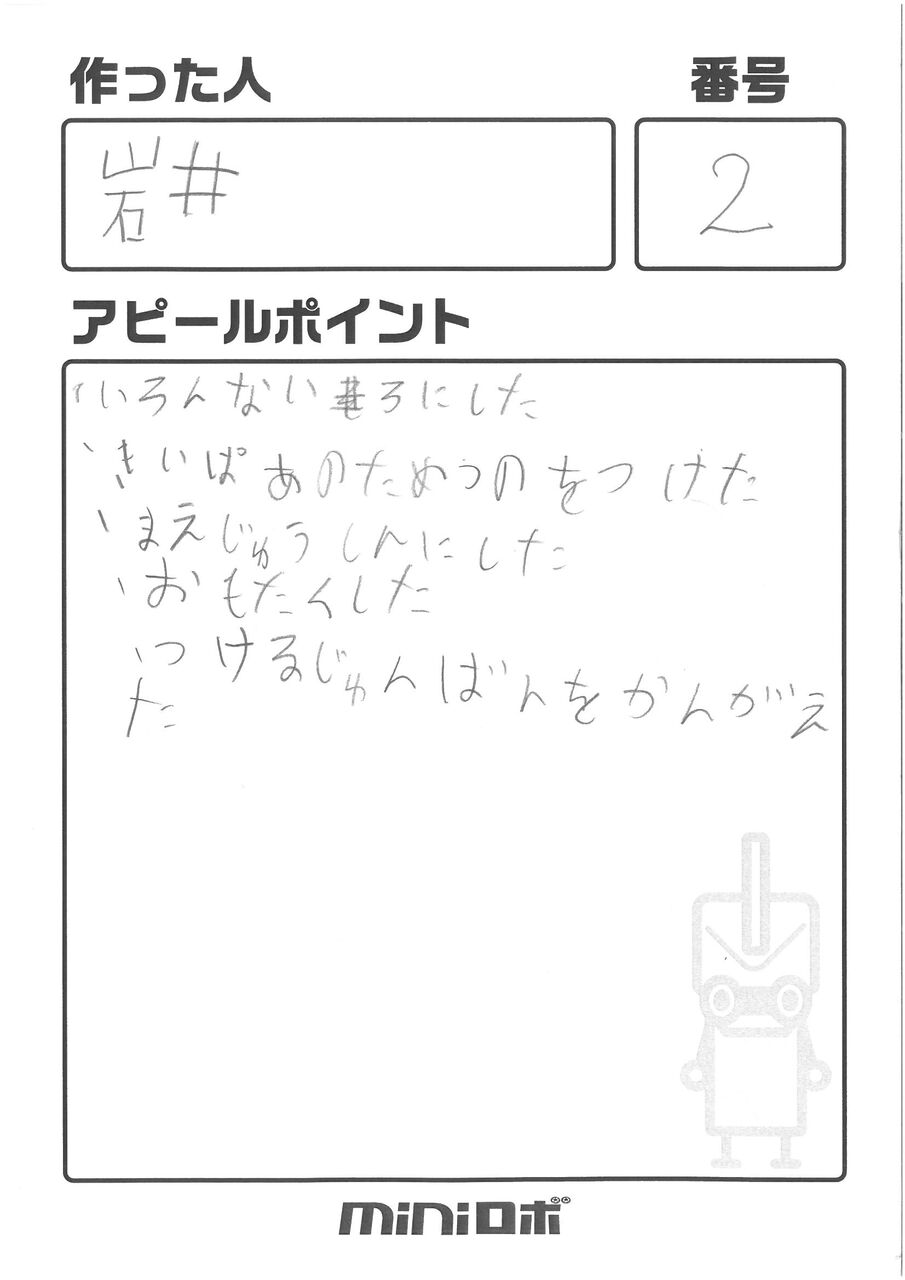 作った人
番号
岩井
2
アピールポイント
、いろんないろにした
、きいぱあのためうのをつけた
、まえじゅうしんにした
、おもたくした
、つけるじゅんばんをかんがえ
た
miniロボ